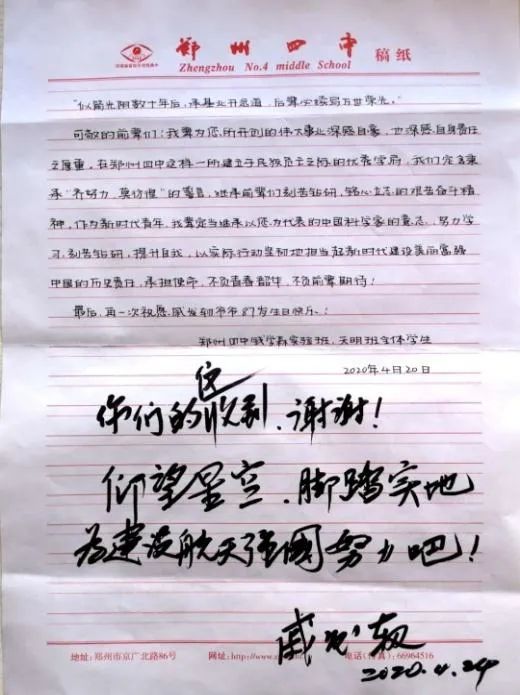 郑州四中 稿纸
Zhengzhou No.4 middle School
“似箭光阴数十年后,承基业开慧道,后辈必续写万世荣光。”
可敬的前辈们:我辈为您所开创的伟大事业深感自豪,也深感自身责任
之厚重,在郑州四中这样一所建立于民族危亡之际的优秀学府,我们定会秉
承“齐努力,莫彷惶”的誓言,继承前辈们刻苦钻研,铭心立志的艰苦奋斗精
神,作为新时代青年,我辈定当继承以您为代表的中国科学家的意志,努力学
习,刻苦钻研,提升自我,以实际行动坚韧地担当起新时代建设美丽富强
中国的历史责任,承担使命,不负青春韶华,不负前辈期待!
最后,再一次祝愿戚发轫爷爷87岁生日快乐!
郑州四中钱学森实验班,天明班全体学生
2020年4月20日
你们的信收到,谢谢!
仰望星空、脚踏实地
为建设航天强国努力吧!
戚发轫
2020.4.24
地址:郑州市京广北路86号 网址:http://www.z 电话(传真):66964516